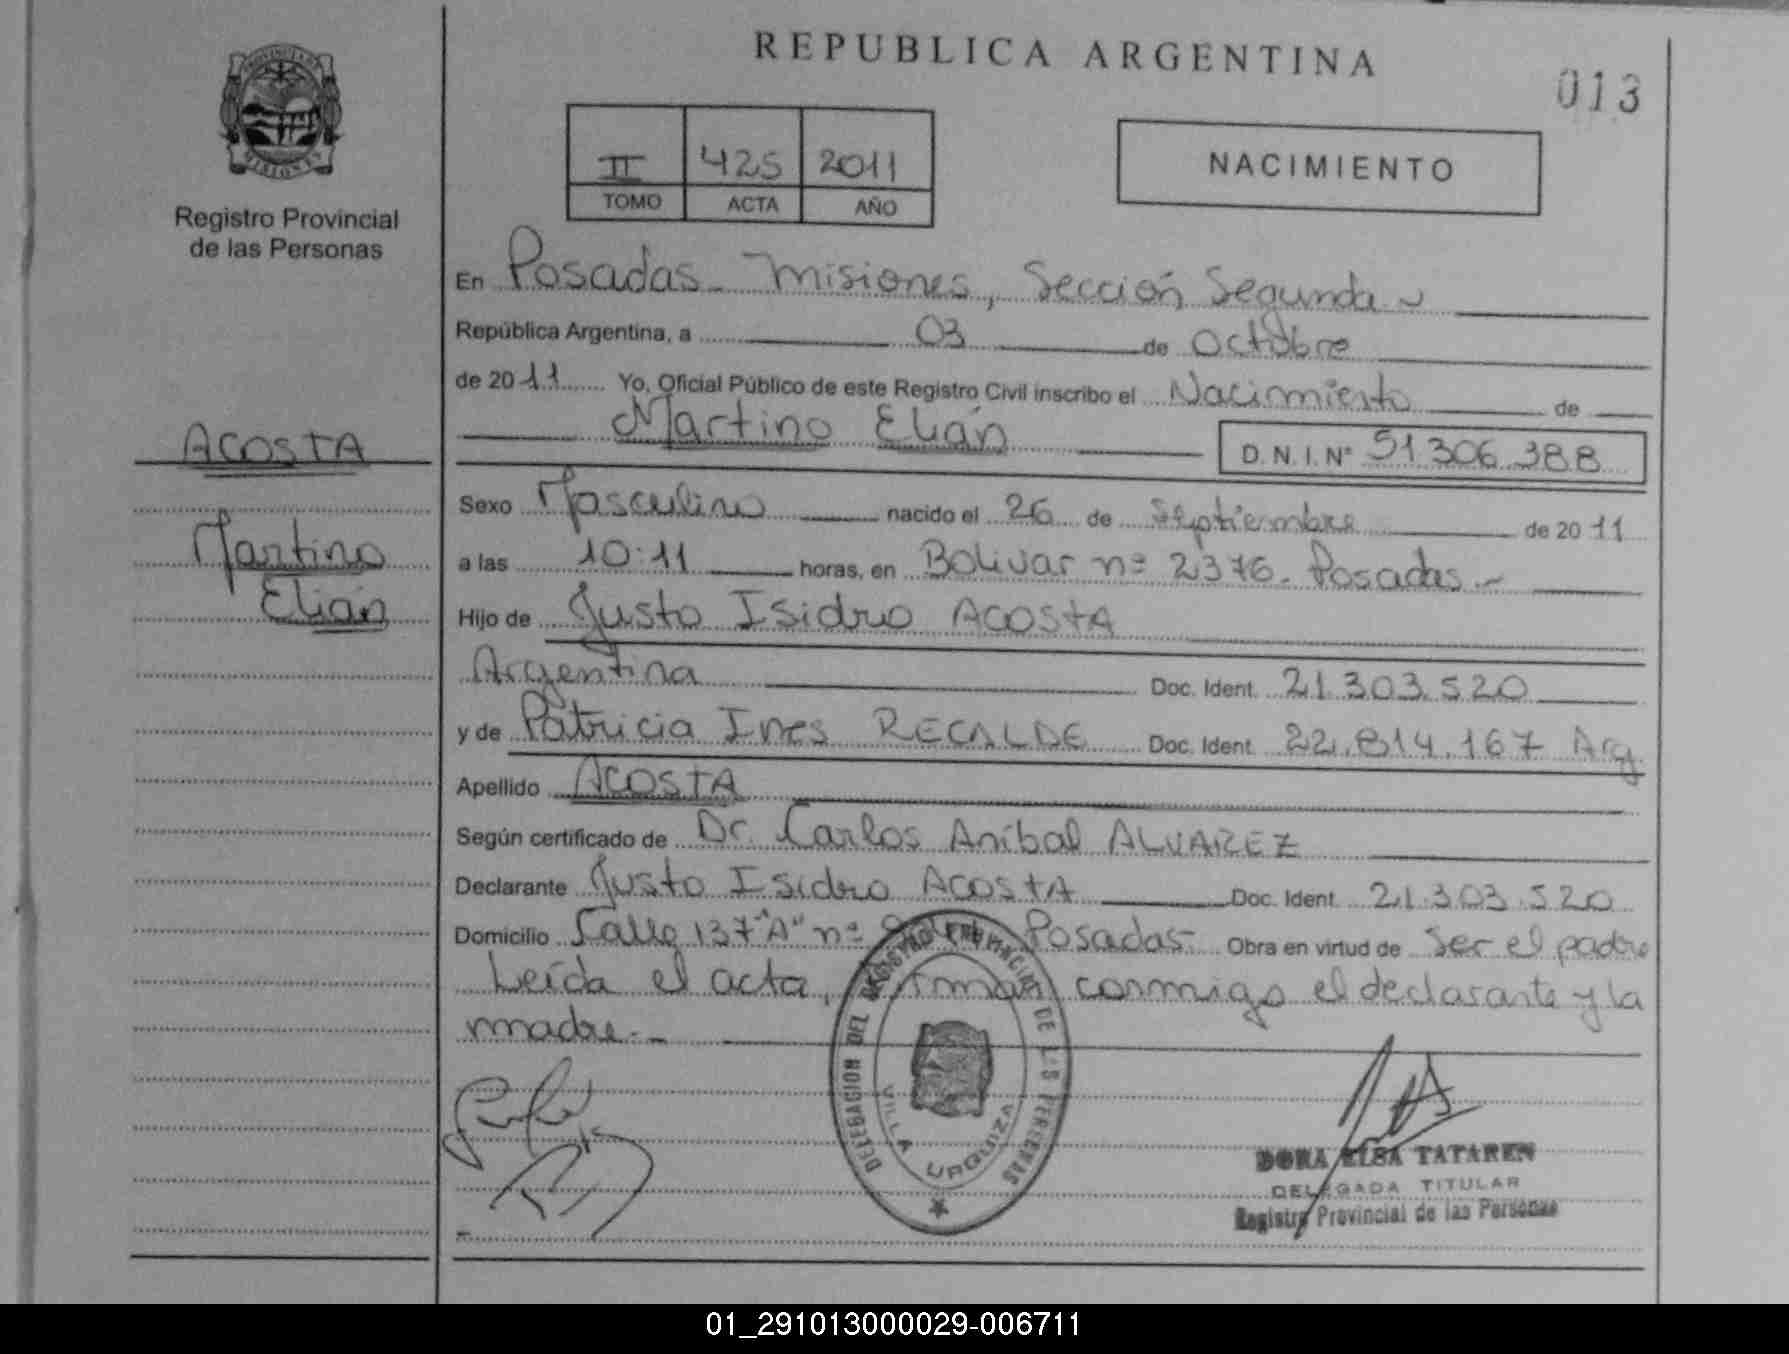 REPUBLICA ARGENTINA
013
PROVINCIA DE
MISIONES
Registro Provincial
de las Personas
II 425 2011
TOMO ACTA AÑO
NACIMIENTO
En Posadas - Misiones, Sección Segunda
República Argentina, a 03 de Octubre
de 2011 Yo, Oficial Público de este Registro Civil inscribo el Nacimiento de
Martino Elián D.N.I.Nº 51.306.388
ACOSTA
Martino
Elián
Sexo Masculino nacido el 26 de Septiembre de 2011
a las 10:11 horas, en Bolivar nº 2376. Posadas.-
Hijo de Justo Isidro ACOSTA
Argentina Doc. Ident. 21.303.520
y de Patricia Ines RECALDE Doc. Ident. 22.814.167 Arg
Apellido ACOSTA
Según certificado de Dr. Carlos Aníbal ALVAREZ
Declarante Justo Isidro ACOSTA Doc. Ident. 21.303.520
Domicilio Calle 137"A" nº Posadas- Obra en virtud de Ser el padre
Leída el acta, firman conmigo el declarante y la
madre.-
DELEGACION DEL REGISTRO PROVINCIAL DE LAS PERSONAS
VILLA URQUIZA
DORA ELSA TATAREN
DELEGADA TITULAR
Registro Provincial de las Personas
01_291013000029-006711